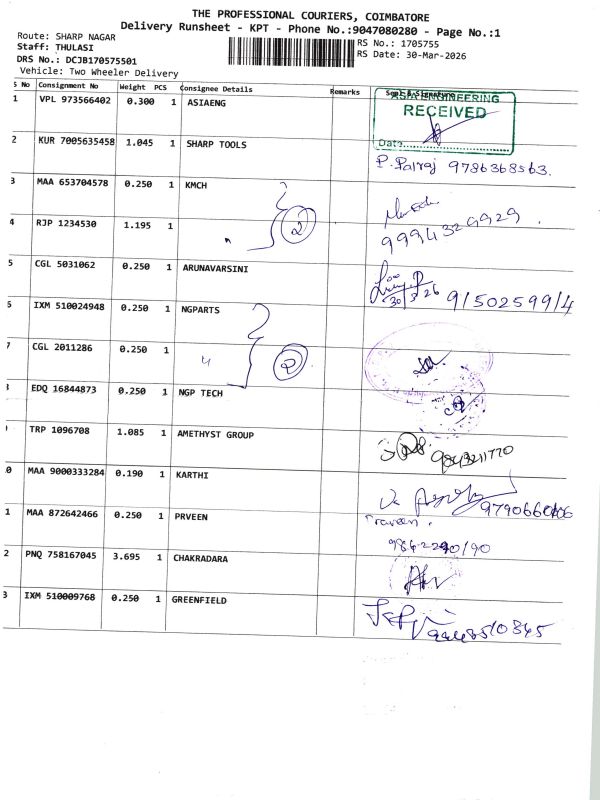 THE PROFESSIONAL COURIERS, COIMBATORE
Delivery Runsheet - KPT - Phone No.:9047080280 - Page No.:1
Route: SHARP NAGAR
Staff: THULASI
DRS No.: DCJB170575501
Vehicle: Two Wheeler Delivery
RS No.: 1705755
RS Date: 30-Mar-2026
S No Consignment No Weight PCS Consignee Details Remarks
1 VPL 973566402 0.300 1 ASIAENG
ASIA ENGINEERING
RECEIVED
Date
2 KUR 7005635458 1.045 1 SHARP TOOLS P. Palraj 9786368563.
3 MAA 653704578 0.250 1 KMCH
2
4 RJP 1234530 1.195 1 9994329929
5 CGL 5031062 0.250 1 ARUNAVARSINI 30/3/26 9150259914
6 IXM 510024948 0.250 1 NGPARTS
7 CGL 2011286 0.250 1
2
8 EDQ 16844873 0.250 1 NGP TECH
9 TRP 1096708 1.085 1 AMETHYST GROUP 9843211770
0 MAA 9000333284 0.190 1 KARTHI
1 MAA 872642466 0.250 1 PRVEEN Praveen.
2 PNQ 758167045 3.695 1 CHAKRADARA
3 IXM 510009768 0.250 1 GREENFIELD